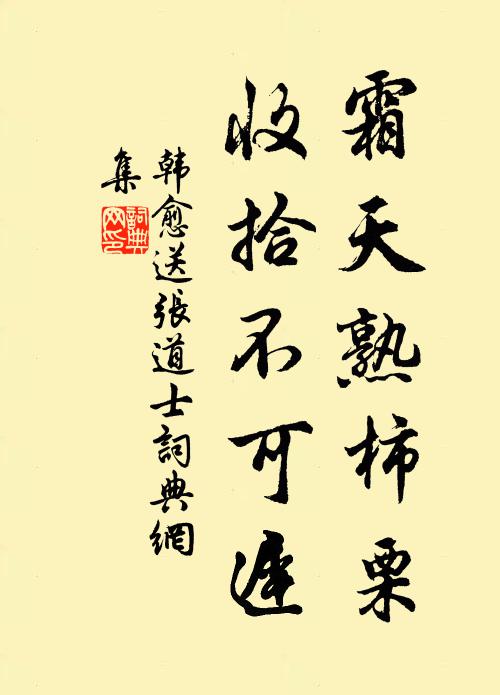 霜天熟柿栗
收拾不可遲
韩愈送張道士詞典網
集
詞典网印